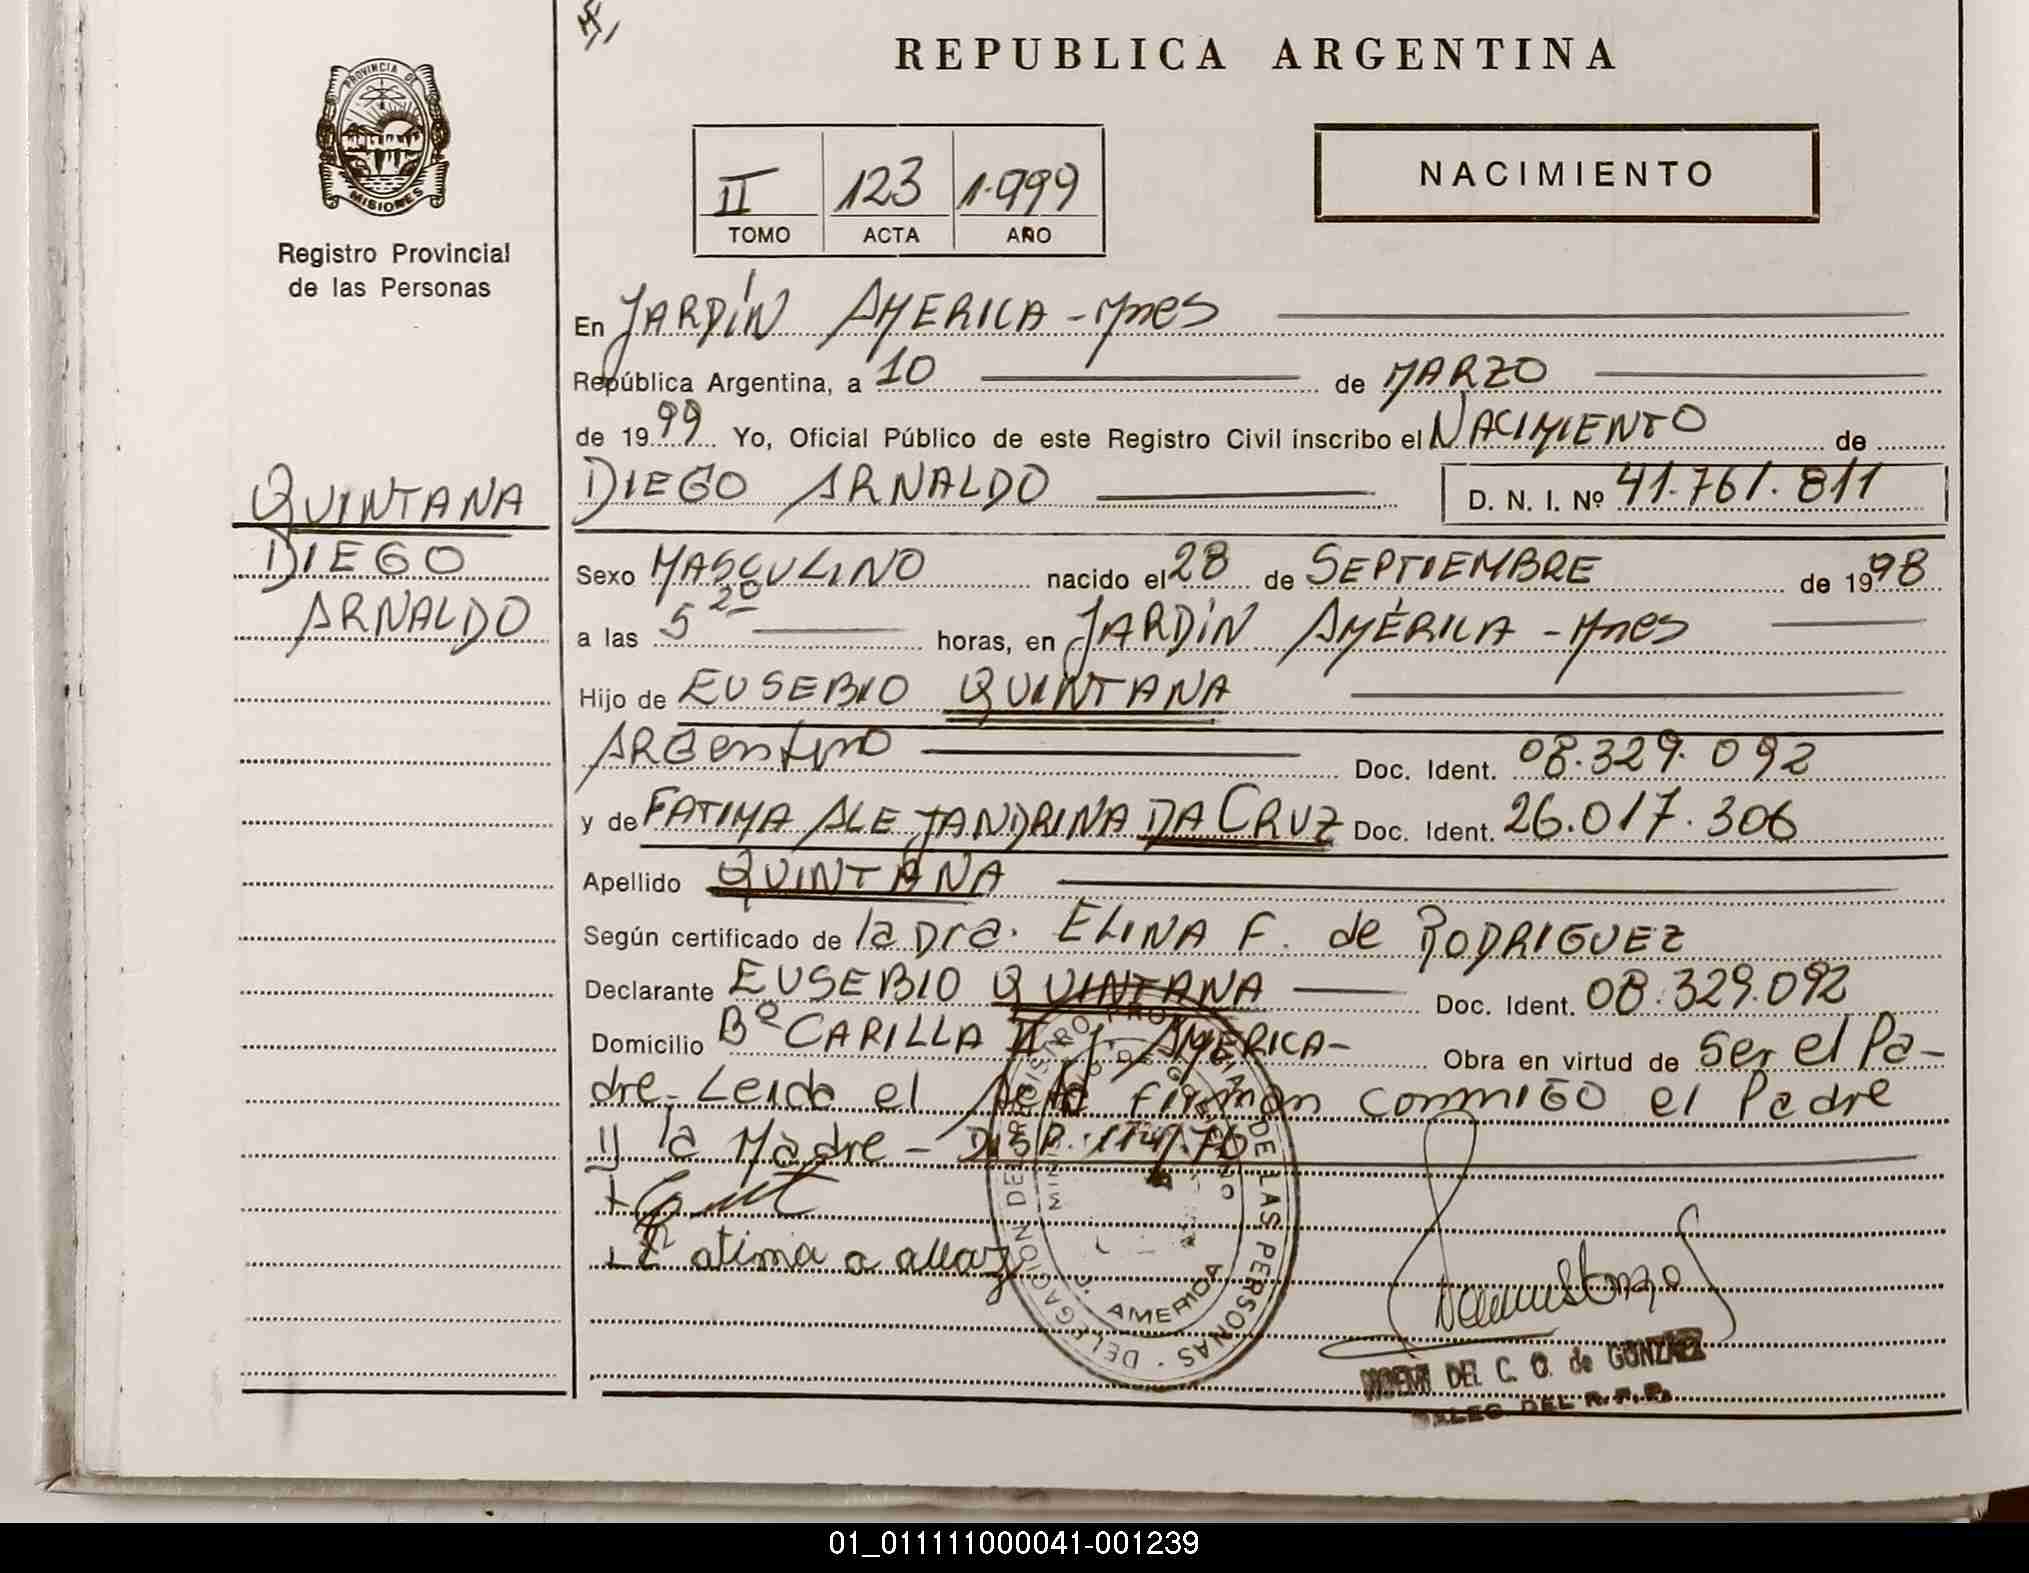 REPUBLICA ARGENTINA
PROVINCIA DE
MISIONES
Registro Provincial
de las Personas
II 123 1.999
TOMO ACTA AÑO
NACIMIENTO
QUINTANA
DIEGO
ARNALDO
En JARDÍN AMERICA - Mnes
República Argentina, a 10 de MARZO
de 1999 Yo, Oficial Público de este Registro Civil inscribo el NACIMIENTO de
DIEGO ARNALDO D. N. I. Nº 41.761.811
Sexo MASCULINO nacido el 28 de SEPTIEMBRE de 1998
a las 5 20 horas, en JARDÍN AMÉRICA - Mnes
Hijo de EUSEBIO QUINTANA
ARGentino Doc. Ident. 08.329.092
y de FATIMA ALEJANDRINA DA CRUZ Doc. Ident. 26.017.306
Apellido QUINTANA
Según certificado de la Dra. ELINA F. de RODRIGUEZ
Declarante EUSEBIO QUINTANA Doc. Ident. 08.329.092
Domicilio Bº CARILLA II J. AMERICA- Obra en virtud de Ser el Pa-
dre. Leida el Acta firman conmigo el Padre
y la Madre - DISP.
REGISTRO PROVINCIAL DE LAS PERSONAS · DELEGACION
AMERICA
NOEMI DEL C. O. de GONZALEZ
DELEG DEL R. P. P.
01_011111000041-001239